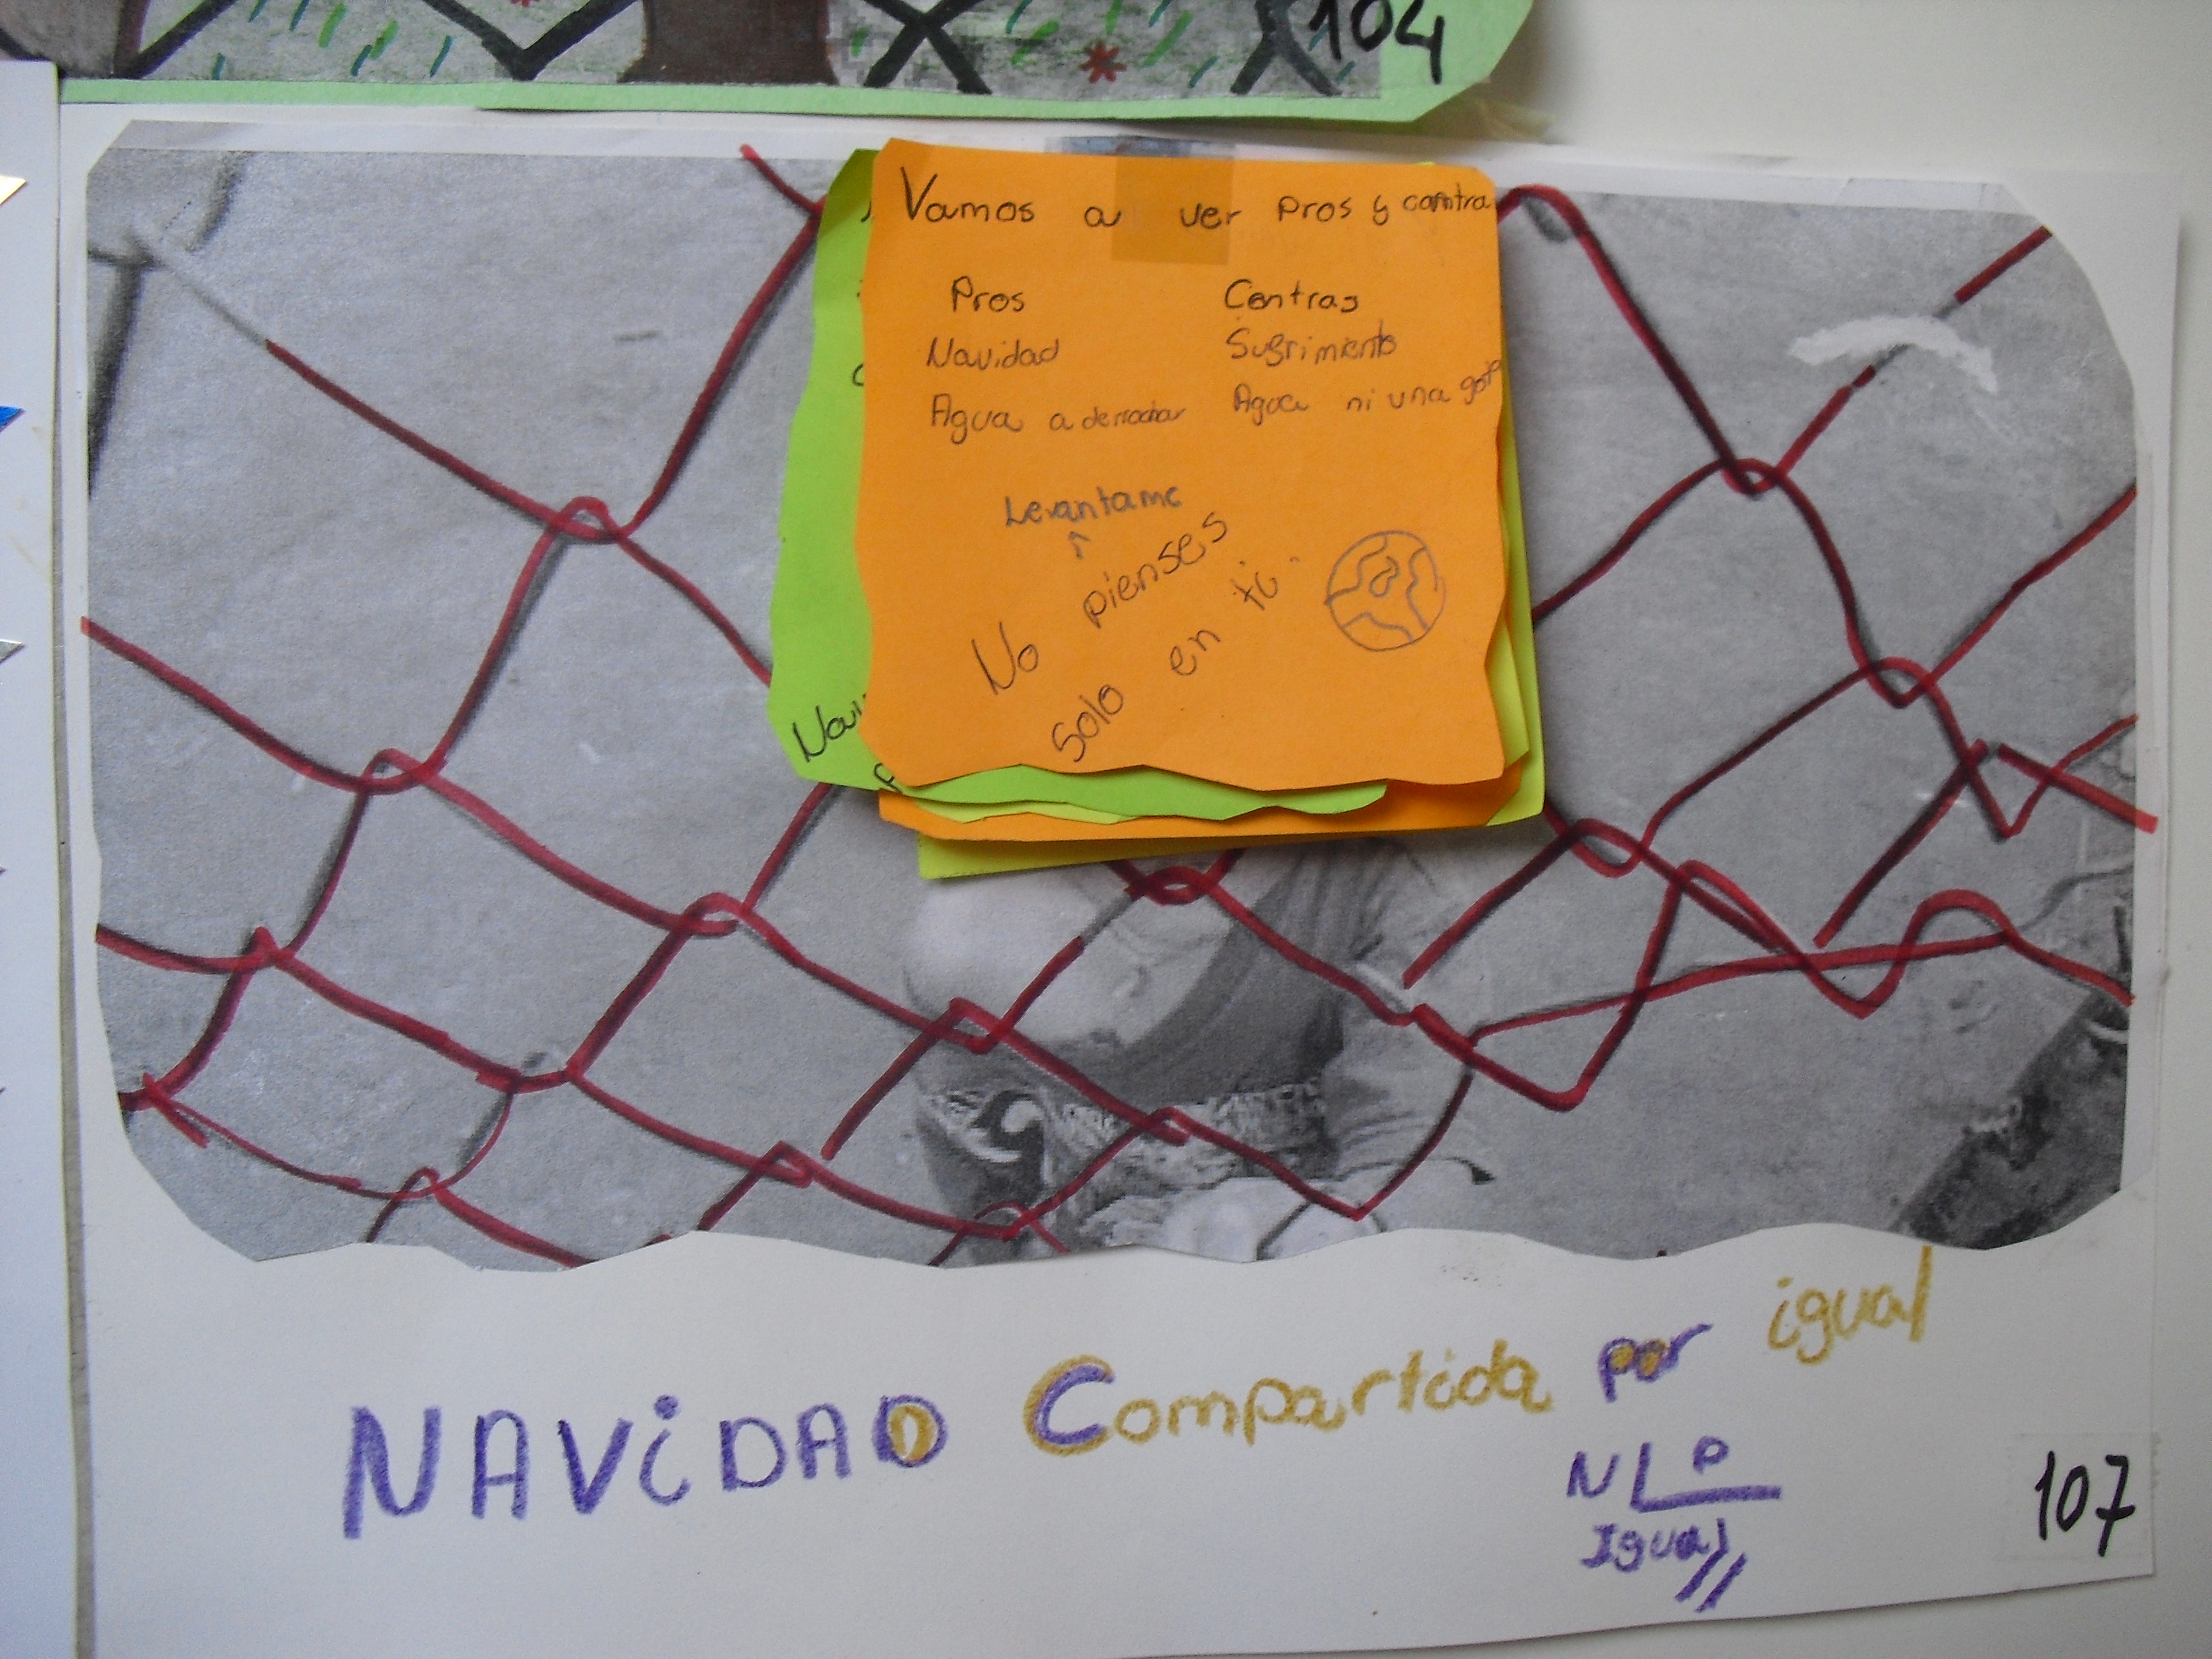 104
Vamos a ver Pros y contra
Pros Contras
Navidad Sufrimiento
Agua a derrochar Agua ni una gota
Levantame
No pienses
solo en ti.
NAViDAD Compartida por igual
N P
Igual
107